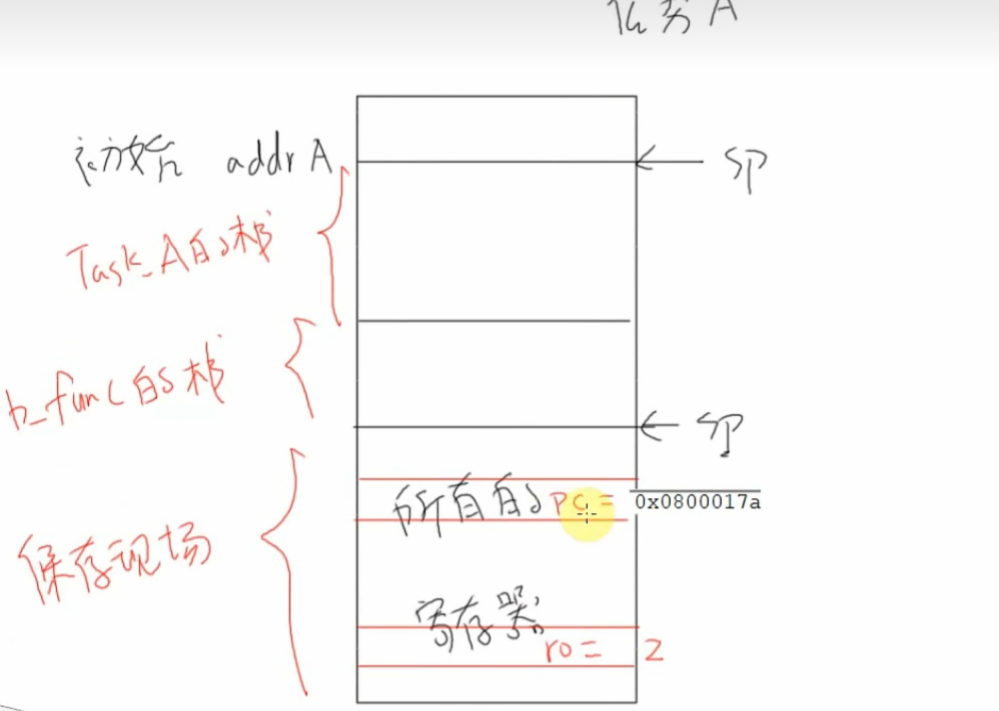 任务A
初始 addr A
SP
Task_A自的栈
b_func自的栈
SP
所有的 PC = 0x0800017a
保存现场
寄存器
r0 = 2